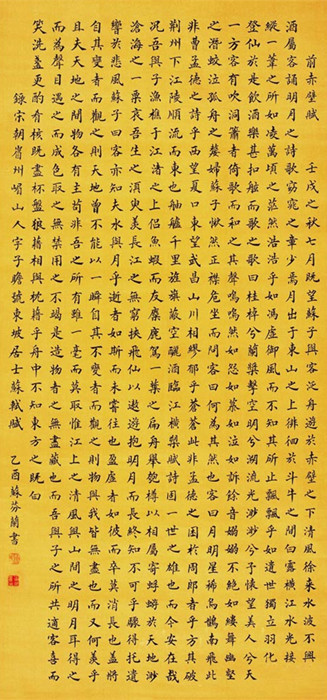 前赤壁賦 壬戌之秋七月既望蘇子與客泛舟遊於赤壁之下清風徐來水波不興舉
酒屬客誦明月之詩歌窈窕之章少焉月出於東山之上徘徊於斗牛之間白露橫江水光接天
縱一葦之所如凌萬頃之茫然浩浩乎如馮虛御風而不知其所止飄飄乎如遺世獨立羽化而
登仙於是飲酒樂甚扣舷而歌之歌曰桂棹兮蘭槳擊空明兮溯流光渺渺兮予懷望美人兮天
一方客有吹洞簫者倚歌而和之其聲嗚嗚然如怨如慕如泣如訴餘音嫋嫋不絕如縷舞幽壑
之潛蛟泣孤舟之嫠婦蘇子愀然正襟危坐而問客曰何為其然也客曰月明星稀烏鵲南飛此
非曹孟德之詩乎西望夏口東望武昌山川相繆鬱乎蒼蒼此非孟德之困於周郎者乎方其破
荊州下江陵順流而東也舳艫千里旌旗蔽空釃酒臨江橫槊賦詩固一世之雄也而今安在哉
況吾與子漁樵於江渚之上侶魚蝦而友麋鹿駕一葉之扁舟舉匏樽以相屬寄蜉蝣於天地渺
滄海之一粟哀吾生之須臾羨長江之無窮挾飛仙以遨遊抱明月而長終知不可乎驟得托遺
響於悲風蘇子曰客亦知夫水與月乎逝者如斯而未嘗往也盈虛者如彼而卒莫消長也蓋將
自其變者而觀之則天地曾不能以一瞬自其不變者而觀之則物與我皆無盡也而又何羨乎
且夫天地之間物各有主苟非吾之所有雖一毫而莫取惟江上之清風與山間之明月耳得之
而為聲目遇之而成色取之無禁用之不竭是造物者之無盡藏也而吾與子之所共適客喜而
笑洗盞更酌肴核既盡杯盤狼藉相與枕藉乎舟中不知東方之既白
錄宋朝眉州嵋山人字子瞻號東坡居士蘇軾賦 乙酉蘇芬蘭書